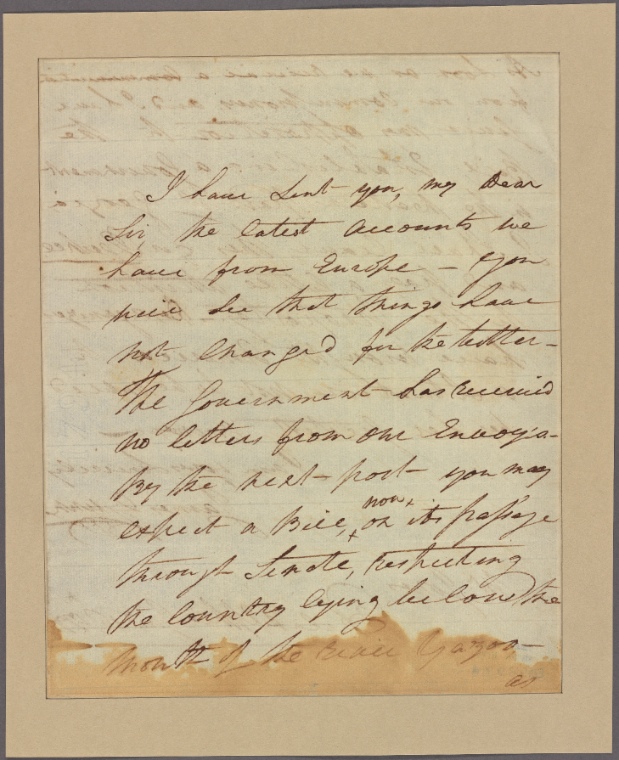 I have sent you, my Dear
Sir, the latest accounts we
have from Europe – you
will see that things have
not changed for the better –
The Government has received
no letters from our Envoys –
By the next post you may
expect a Bill, now on its passage
through Senate, respecting
the country lying below the
mouth of the River Yazoo –
as